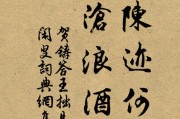 陳迹何
滄浪酒
賀鑄答王拙見
叟詞典網